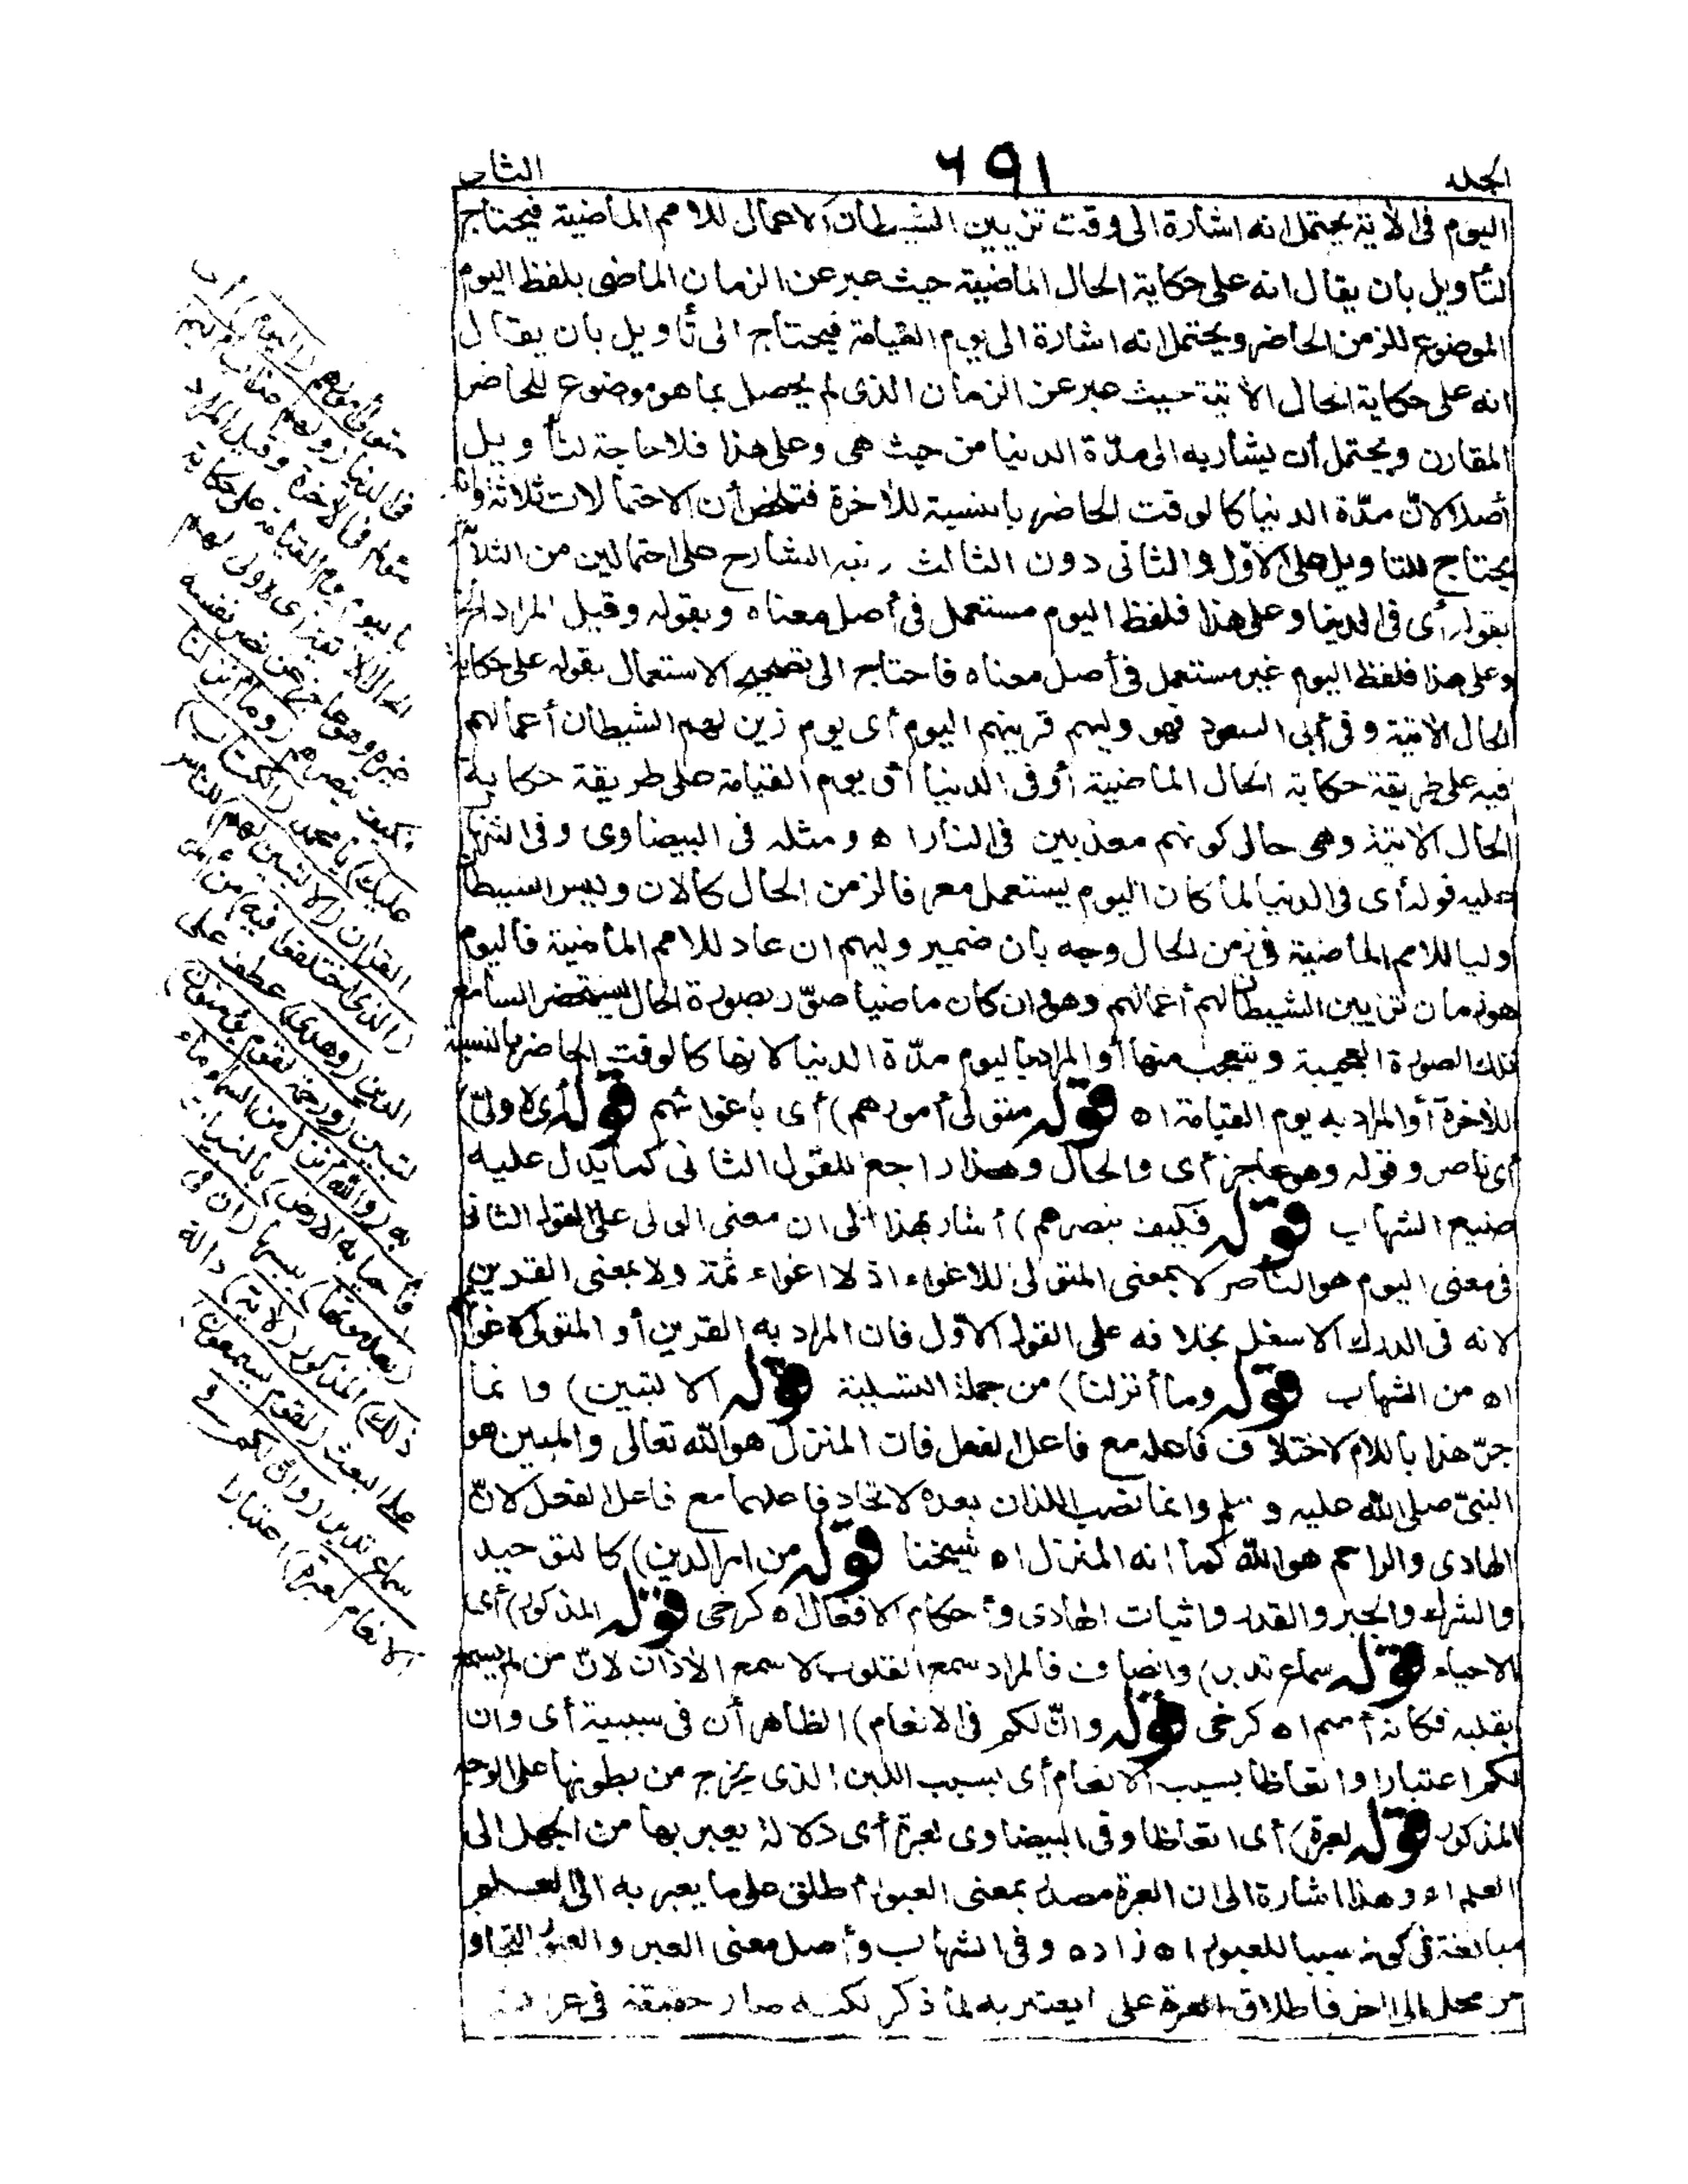 الجلد
٦٩١
الثانى
اليوم فى الآية يحتمل انه اشارة الى وقت تزيين الشيطان الاعمال للامم الماضية فيحتاج
لتأويل بان يقال انه على حكاية الحال الماضية حيث عبر عن الزمان الماضى بلفظ اليوم
الموضوع للزمن الحاضر ويحتمل انه اشارة الى يوم القيامة فيحتاج الى تأويل بان يقال
انه على حكاية الحال الآتية حيث عبر عن الزمان الذى لم يحصل بما هو موضوع للحاضر
المقارن ويحتمل أن يشار به الى مدّة الدنيا من حيث هى وعلى هذا فلا حاجة لتأويل
أصلا لانّ مدّة الدنيا كالوقت الحاضر بالنسبة للآخرة فتلخص أن الاحتمالات ثلاثة وانه
يحتاج للتاويل على الاوّل والثانى دون الثالث ونبه الشارح على احتمالين من الثلاثة
بقوله أى فى الدنيا وعلى هذا فلفظ اليوم مستعمل فى أصل معناه وبقوله وقيل المراد الخ
وعلى هذا فلفظ اليوم غير مستعمل فى أصل معناه فاحتاج الى تصحيح الاستعمال بقوله على حكاية
الحال الآتية وفى أبى السعود فهو وليهم قرينهم اليوم أى يوم زين لهم الشيطان أعمالهم
فيه على طريقة حكاية الحال الماضية أو فى الدنيا أو يوم القيامة على طريقة حكاية
الحال الآتية وهى حال كونهم معذبين فى النار اه ومثله فى البيضاوى وفى الشهاب
عليه قوله أى فى الدنيا لما كان اليوم يستعمل معرفا لزمن الحال كالآن وليس الشيطان
وليا للامم الماضية فى زمن الحال وجه بان ضمير وليهم ان عاد للامم الماضية فاليوم
هو زمان تزيين الشيطان لهم أعمالهم وهو وان كان ماضيا صوّر بصورة الحال ليستحضر السامع
تلك الصورة العجيبة ويتعجب منها أو المراد باليوم مدّة الدنيا لانها كالوقت الحاضر بالنسبة
للآخرة أو المراد به يوم القيامة اه قوله متولى أمورهم) أى باغوائهم قوله أى لا ولىّ)
أى ناصر وقوله وهو عاجز أى والحال وهذا راجع للقول الثانى كما يدل عليه
صنيع الشهاب قوله فكيف ينصرهم) أشار بهذا الى ان معنى الولى على القول الثانى
فى معنى اليوم هو الناصر لا بمعنى المتولى للاغواء اذ لا اغواء ثمة ولا بمعنى القرين
لانه فى الدرك الاسفل بخلافه على القول الاوّل فان المراد به القرين أو المتولى لاغوائهم
اه من الشهاب قوله وما أنزلنا) من جملة التسلية قوله الا لتبين) وانما
جرّ هذا باللام لاختلاف فاعله مع فاعل الفعل فان المنزل هو الله تعالى والمبين هو
النبىّ صلى الله عليه وسلم وانما نصب اللذان بعده لاتحاد فاعلهما مع فاعل الفعل لانّ
الهادى والراحم هو الله كما انه المنزل اه شيخنا قوله من امر الدين) كالتوحيد
والشرك والجبر والقدر واثبات الهادى وأحكام الافعال اه كرخى قوله المذكور) أى
الاحياء قوله سماع تدبر) وانصاف فالمراد سمع القلوب لا سمع الآذان لانّ من لم يسمع
بقلبه فكانه أصم اه كرخى قوله وانّ لكم فى الانعام) الظاهر أن فى سببية أى وان
لكم اعتبارا واتعاظا بسبب الانعام أى بسبب اللبن الذى يخرج من بطونها على الوجه
المذكور قوله لعبرة) أى اتعاظا وفى البيضاوى لعبرة أى دلالة يعبر بها من الجهل الى
العلم اه وهذا اشارة الى ان العبرة مصدر بمعنى العبور أطلق على ما يعبر به الى العلم
مبالغة فى كونه سببا للعبور اه زاده وفى الشهاب وأصل معنى العبر والعبور التجاوز
من محل الى اخر فاطلاق العبرة على ما يعتبر به لما ذكر لكنه صار حقيقة فى عرف
متولى أمورهم (اليوم) أى
فى الدنيا (ولهم عذاب أليم)
مؤلم فى الآخرة وقيل المراد
باليوم يوم القيامة على حكاية
الحال الآتية أى لا ولى لهم
غيره وهو عاجز عن نصر نفسه
فكيف ينصرهم (وما أنزلنا
عليك) يا محمد (الكتاب)
القرآن (الا لتبين لهم) للناس
(الذى اختلفوا فيه) من أمر
الدين (وهدى) عطف على
لتبين (ورحمة لقوم يؤمنون)
به (والله أنزل من السماء ماء
فأحيا به الارض) بالنبات
(بعد موتها) يبسها (ان فى
ذلك) المذكور (لآية) دالة
على البعث (لقوم يسمعون)
سماع تدبر (وانّ لكم فى
الانعام لعبرة) اعتبارا